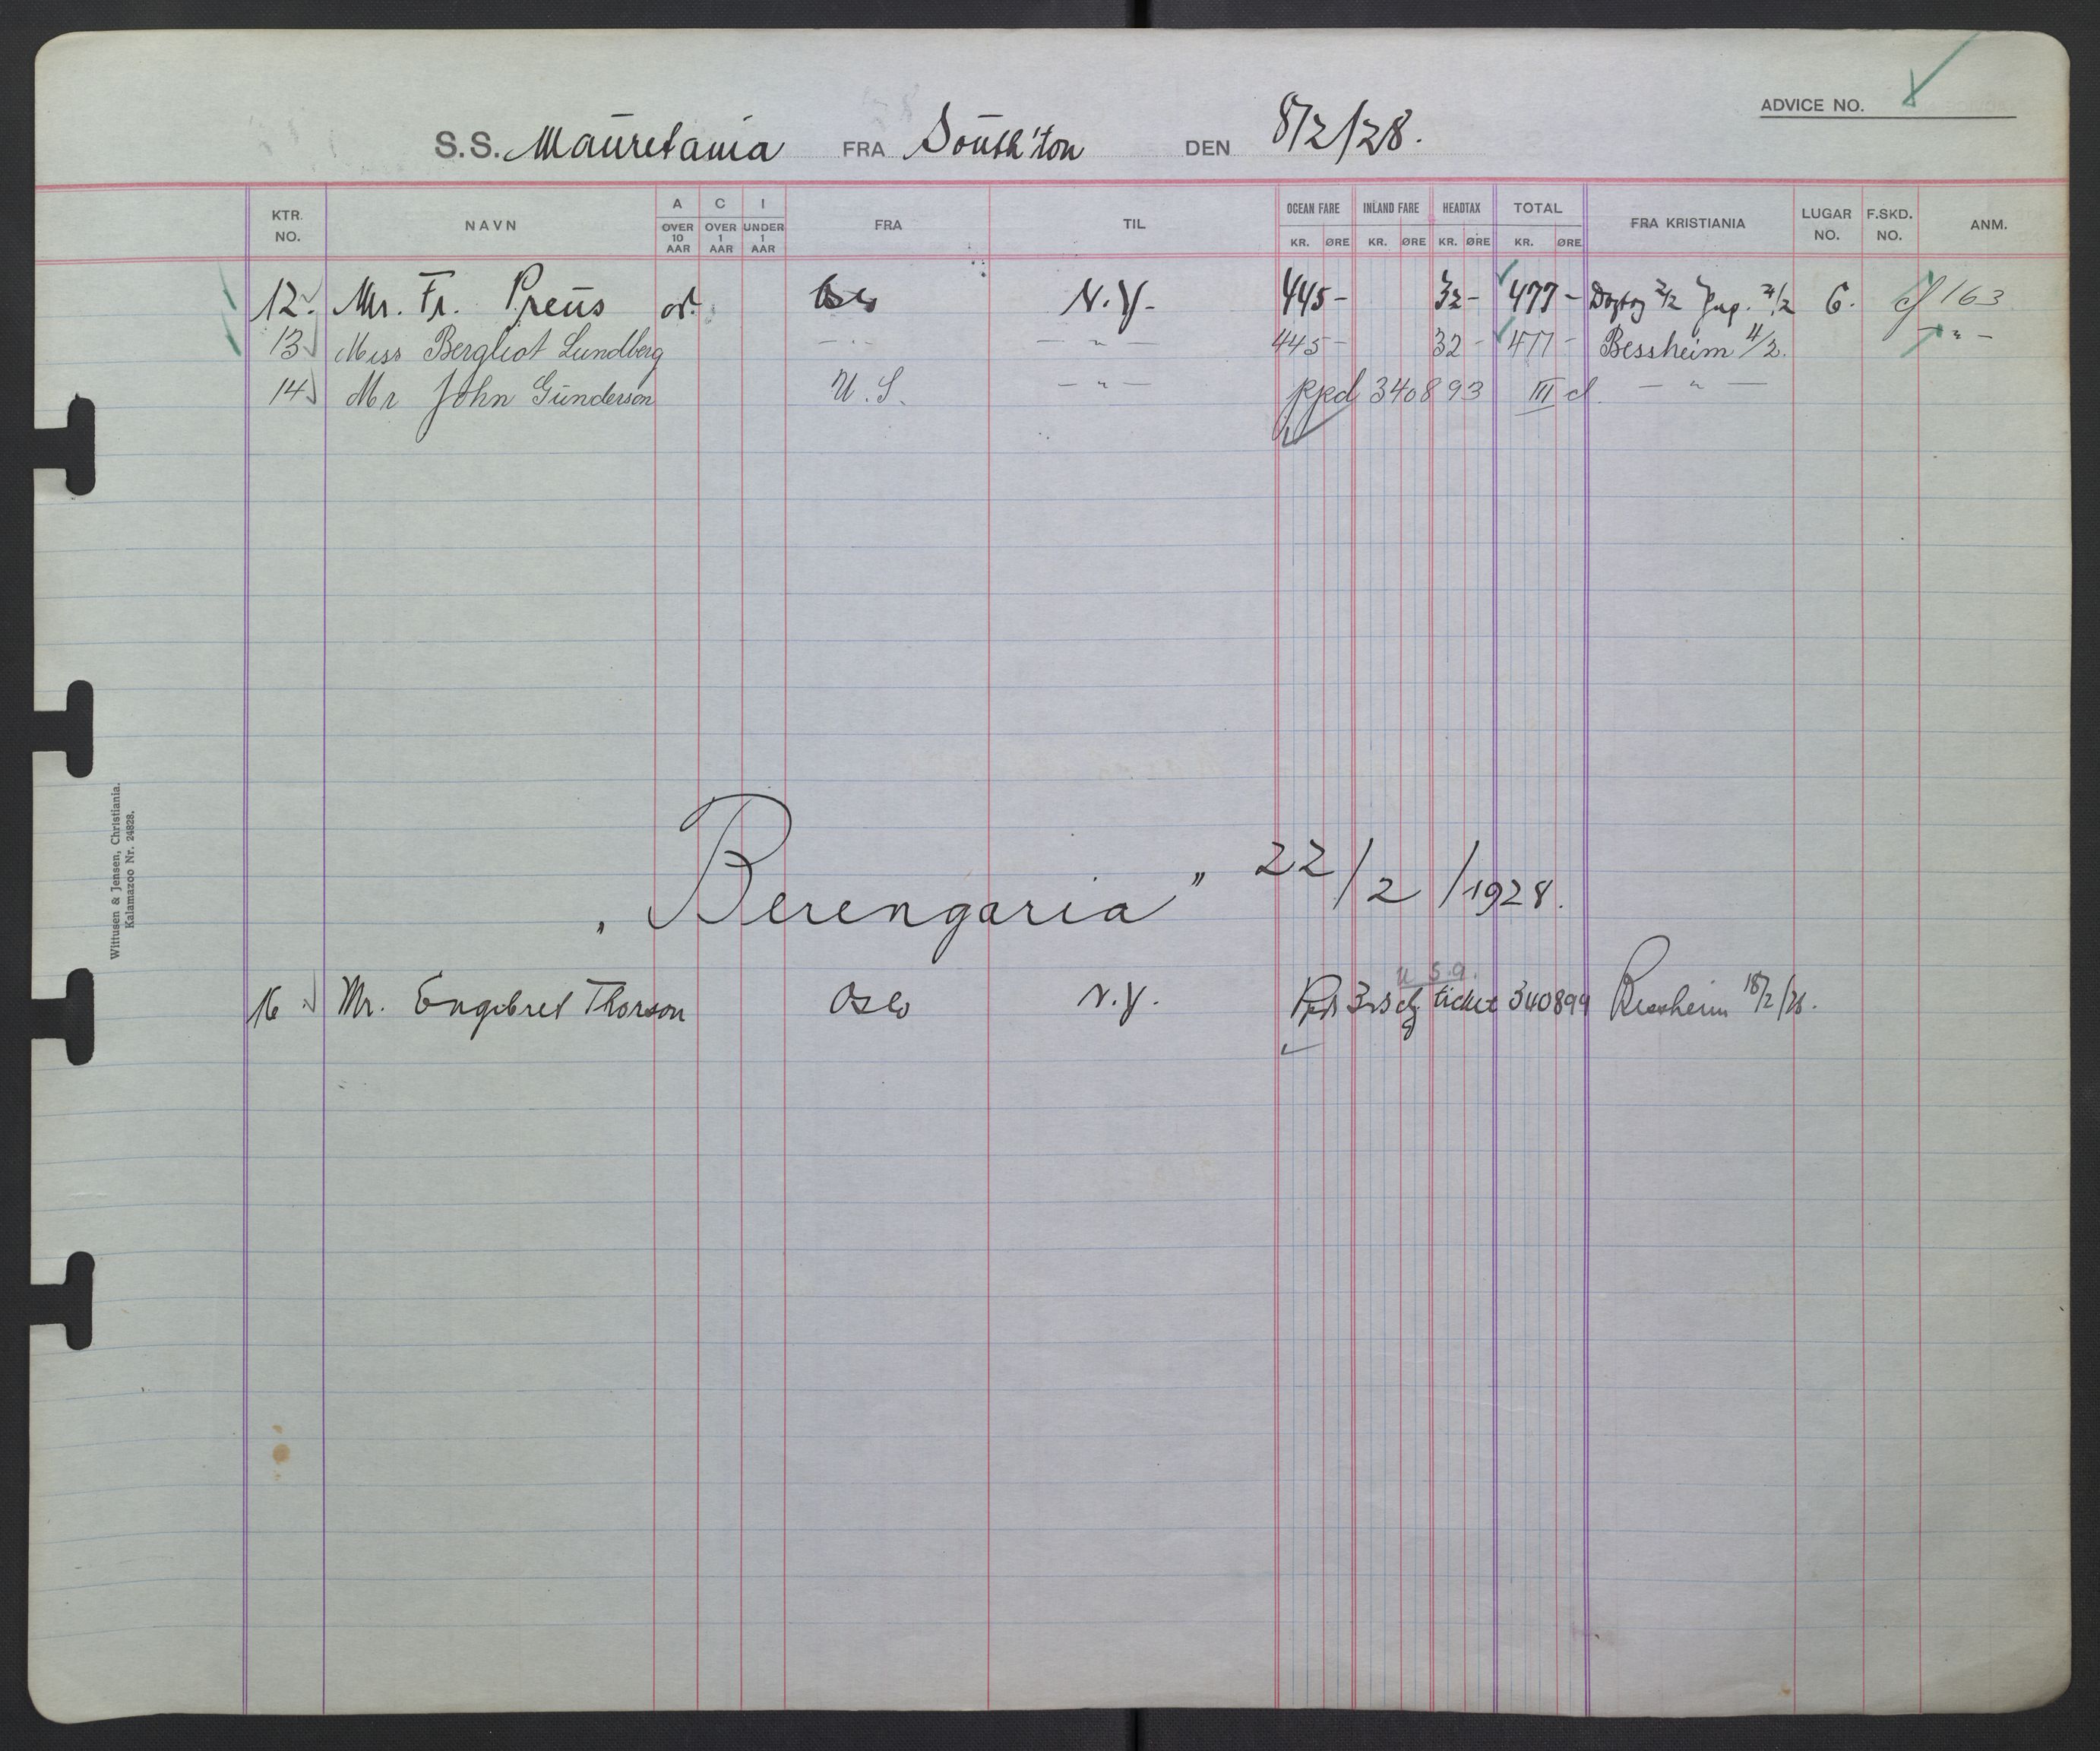 ADVICE NO.
S.S. Mauretania FRA South'ton DEN 8/2/28.
KTR. NO. NAVN A OVER 10 AAR C OVER 1 AAR I UNDER 1 AAR FRA TIL OCEAN FARE KR. ØRE INLAND FARE KR. ØRE HEADTAX KR. ØRE TOTAL KR. ØRE FRA KRISTIANIA LUGAR NO. F.SKD. NO. ANM.
12. Mr. Fr. Preus Oslo N.Y. 445- 32- 477- 2/2 6. 163
13 Miss Bergliot Lundberg - " - - " - 445- 32- 477- Bessheim 4/2. - " -
14 Mr John Gunderson U.S. - " - ppd 340893 III cl. - " -
„Berengaria" 22/2/1928.
U.S.A.
16 Mr. Engebret Thorson Oslo N.Y. Ppd 3rd ticket 340894 Bessheim 18/2/28.
Wittusen & Jensen, Christiania.
Kalamazoo Nr. 24828.